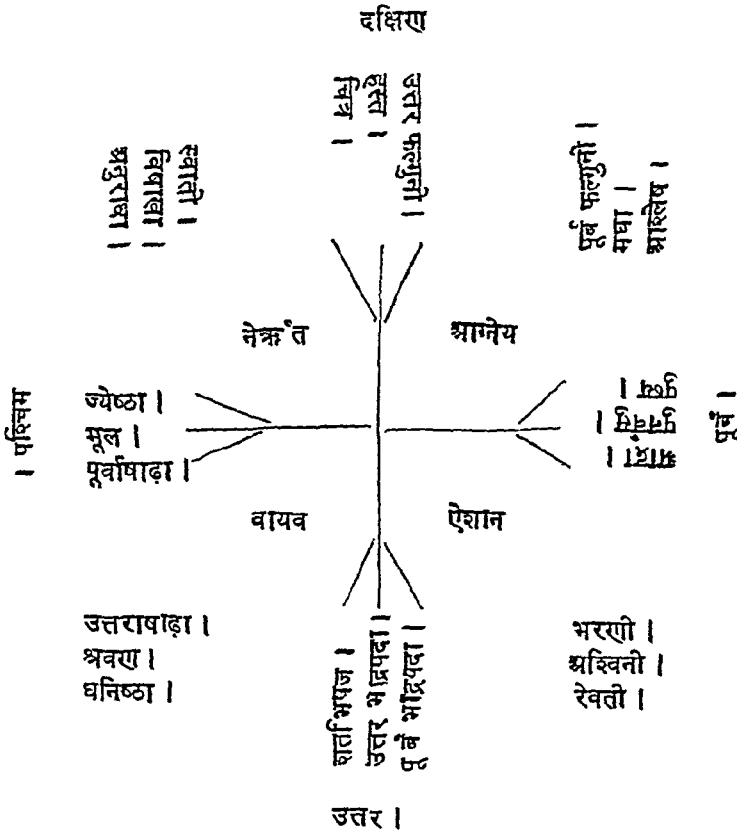 दक्षिण
उत्तर फल्गुनी ।
हस्त ।
चित्र ।
स्वाती ।
विषाखा ।
अनुराधा ।
पूर्व फल्गुनी ।
मघा ।
आश्लेष ।
नेऋंत
आग्नेय
। पश्चिम
ज्येष्ठा ।
मूल ।
पूर्वाषाढ़ा ।
पुष्य ।
पुनर्वसु ।
आर्द्रा ।
पूर्व ।
वायव
ऐशान
उत्तराषाढ़ा ।
श्रवण ।
धनिष्ठा ।
शतभिषज ।
उत्तर भाद्रपदा ।
पूर्व भाद्रपदा ।
भरणी ।
अश्विनी ।
रेवती ।
उत्तर ।